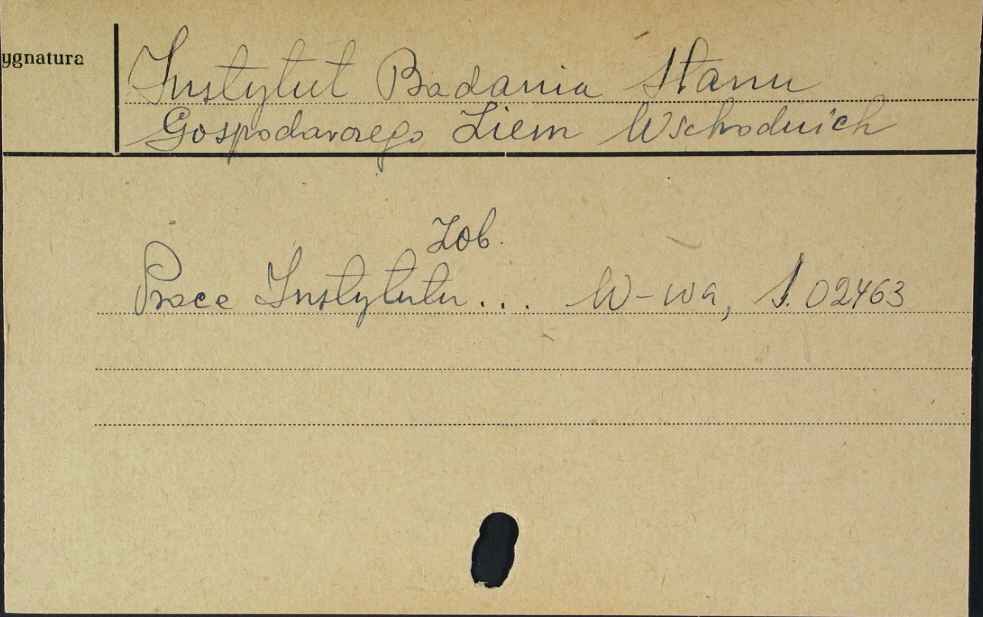 ygnatura
Instytut Badania Stanu
Gospodarczego Ziem Wschodnich
Zob.
Prace Instytutu... W-wa, S. 02463